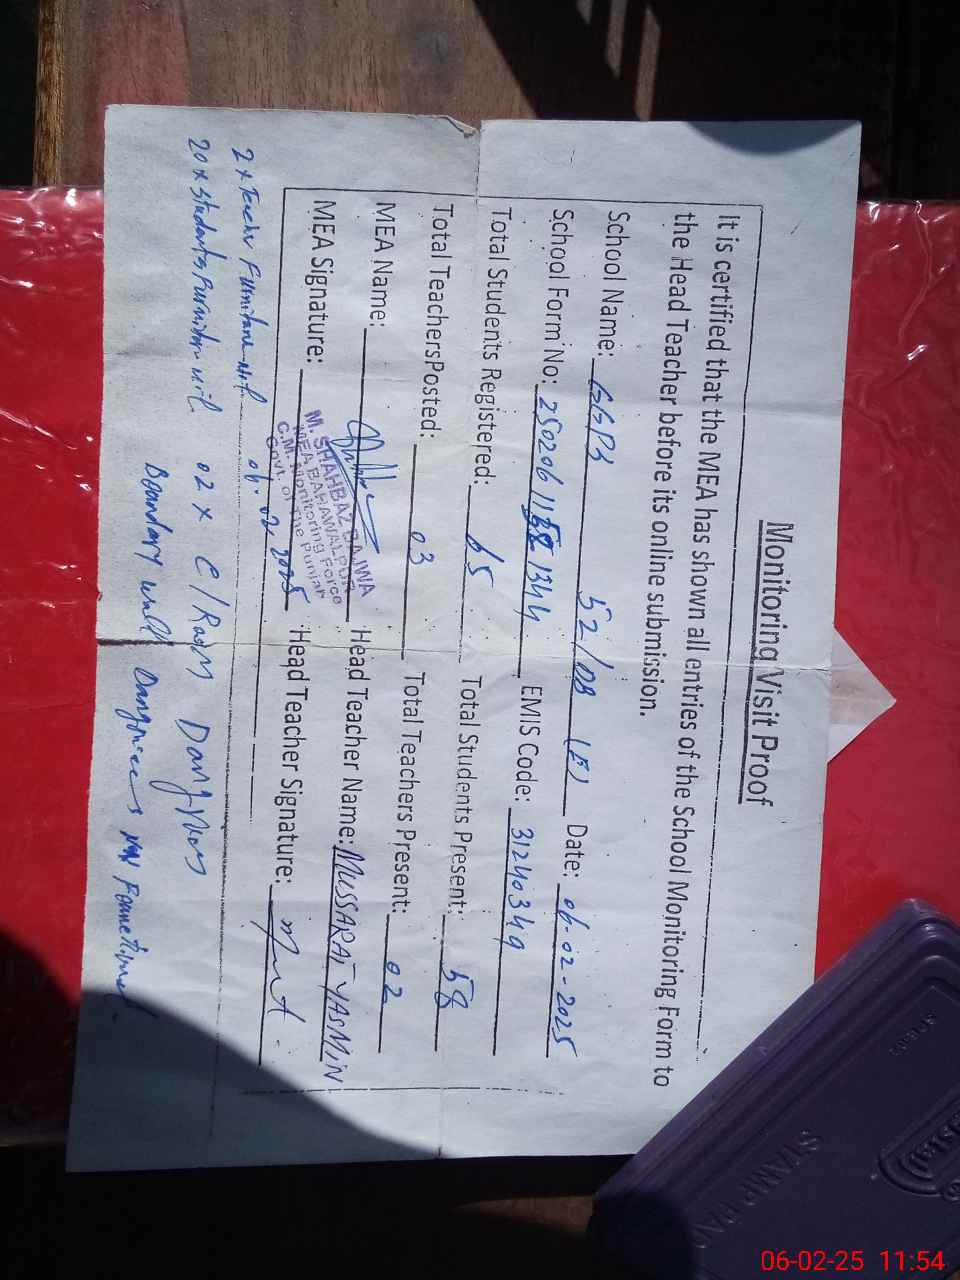 Monitoring Visit Proof
It is certified that the MEA has shown all entries of the School Monitoring Form to
the Head Teacher before its online submission.
School Name: GGPS 52/DB (E) Date: 06-02-2025
School Form No: 250206 1344 EMIS Code: 31240349
Total Students Registered: 65 Total Students Present: 58
Total TeachersPosted: 03 Total Teachers Present: 02
MEA Name: Head Teacher Name: MUSSARAT YASMIN
MEA Signature: Head Teacher Signature:
M. SHAHBAZ BAJWA
MEA BAHAWALPUR
C.M. Monitoring Force
Govt. of The Punjab
06.02.2025
2 x Teacher Furniture Nil
20 x Students Furniture Nil 02 x C/Room
Boundary wall
STAMP PAD
06-02-25 11:54